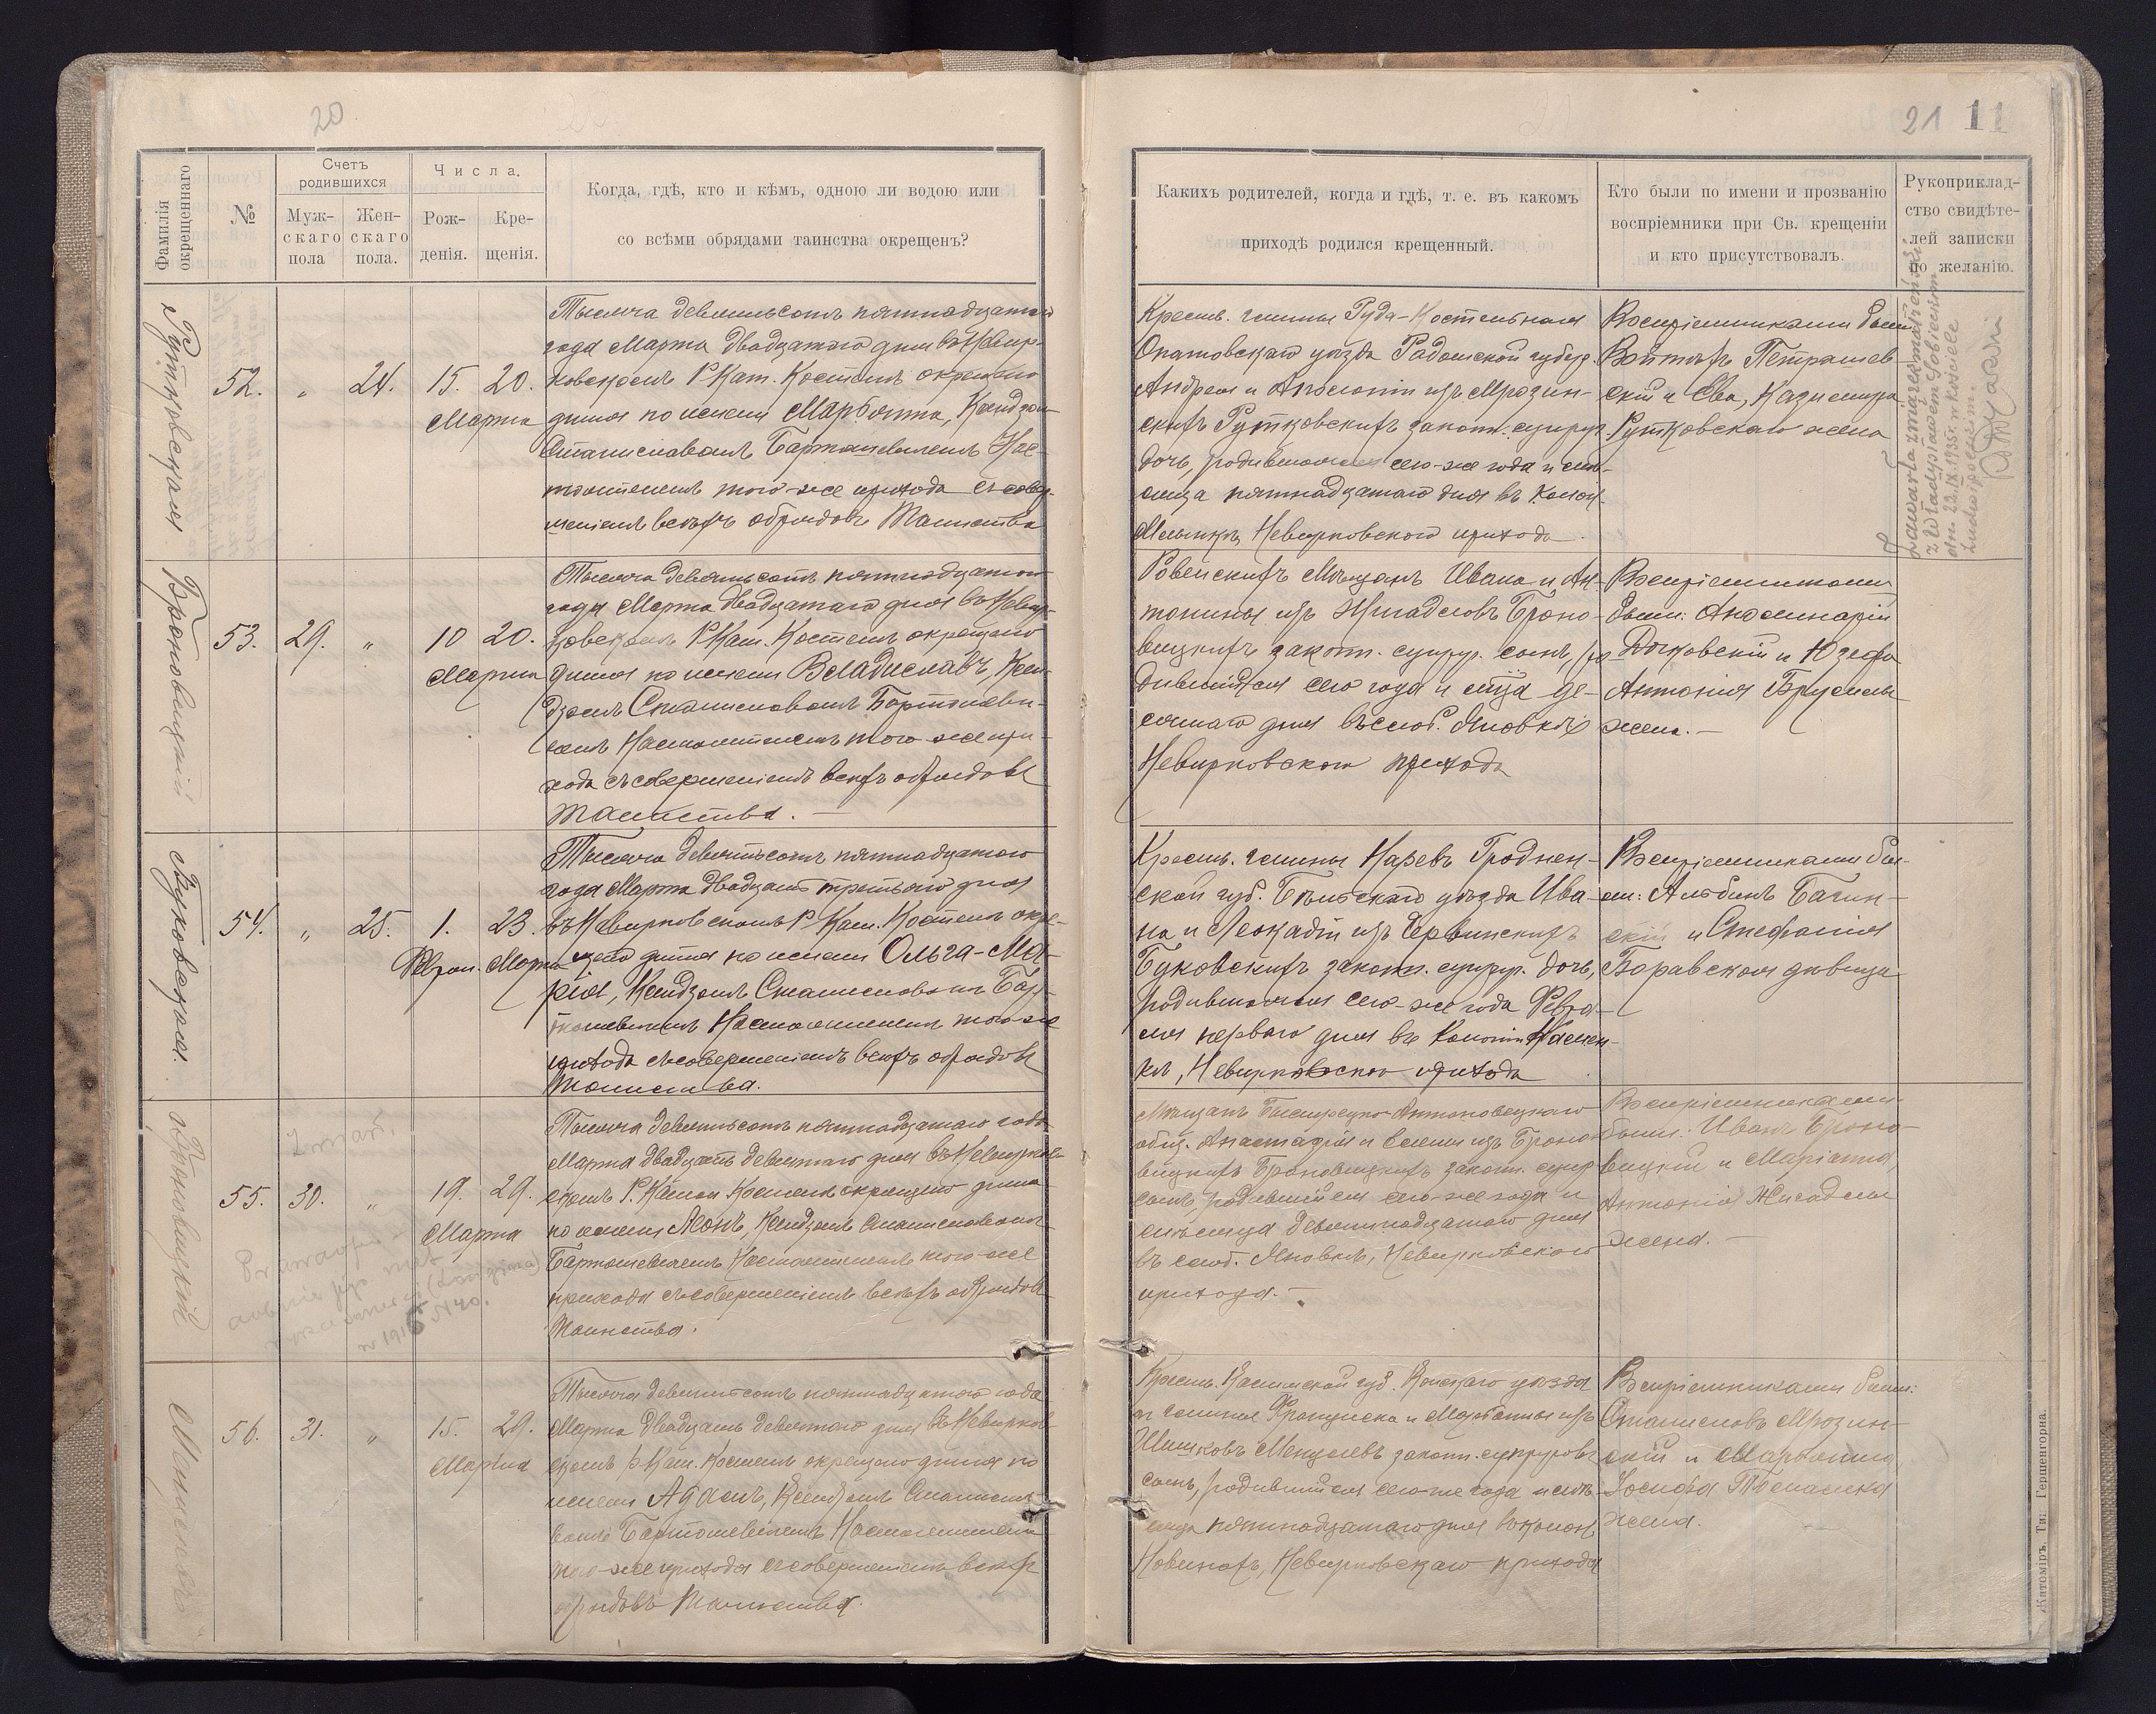 20
Фамилія окрещеннаго
№
Счетъ родившихся
Муж-
скаго
пола
Жен-
скаго
пола.
Числа.
Рож-
денія.
Кре-
щенія.
Когда, гдѣ, кто и кѣмъ, одною ли водою или
со всѣми обрядами таинства окрещенъ?
Рутковская
52.
„
24.
15.
20.
Марта
Тысяча девятьсотъ пятнадцатаго
года Марта двадцатаго дня въ Невир-
ковскомъ Р. Кат. Костелѣ окрещено
дитя по имени Марьянна, Ксендзомъ
Станиславомъ Бартошевичемъ Нас-
тоятелемъ того-же прихода съ совер-
шеніемъ всѣхъ обрядовъ Таинства
Броновицкій
53.
29.
„
10
20.
Марта
Тысяча девятьсотъ пятнадцатаго
года Марта двадцатаго дня въ Невир-
ковскомъ Р. Кат. Костелѣ окрещено
дитя по имени Владиславъ, Ксен-
дзомъ Станиславомъ Бартошеви-
чемъ Настоятелемъ того-же при-
хода съ совершеніемъ всѣхъ обрядовъ
Таинства. —
Буковская.
54.
„
25.
1.
23.
Феврал. Марта
Тысяча девятьсотъ пятнадцатаго
года Марта двадцать третьяго дня
въ Невирковскомъ Р. Кат. Костелѣ окре-
щено дитя по имени Ольга-Ма-
рія, Ксендзомъ Станиславомъ Бар-
тошевичемъ Настоятелемъ того-же
прихода съ совершеніемъ всѣхъ обрядовъ
Таинства.
Броновицкій
Zmarł,
55.
30.
„
19.
29.
Марта
w 1915 № 40.
Тысяча девятьсотъ пятнадцатаго года
Марта двадцать девятаго дня въ Невирков-
скомъ Р. Катол. Костелѣ окрещено дитя
по имени Леонъ, Ксендзомъ Станиславомъ
Бартошевичемъ Настоятелемъ того-же
прихода съ совершеніемъ всѣхъ обрядовъ
Таинства.
56.
31.
„
15.
29.
Марта
Тысяча девятьсотъ пятнадцатаго года
Марта двадцать девятаго дня въ Невирков-
скомъ Р. Кат. Костелѣ окрещено дитя по
имени Адамъ, Ксендзомъ Станисла-
вомъ Бартошевичемъ Настоятелемъ
того-же прихода съ совершеніемъ всѣхъ
обрядовъ Таинства.
21 11
Какихъ родителей, когда и гдѣ, т. е. въ какомъ
приходѣ родился крещенный.
Кто были по имени и прозванію
воспріемники при Св. крещеніи
и кто присутствовалъ.
Рукоприклад-
ство свидѣте-
лей записки
по желанію.
Крест. гмины Руда-Костельная
Опатовскаго уѣзда Радомской губер.
Андрея и Аполоніи изъ Мрозин-
скихъ Рутковскихъ законн. супруг.
дочь, родившаяся сего-же года и мѣ-
сяца пятнадцатаго дня въ Колон.
Невирковскаго прихода.
Воспріемниками были
Войтѣхъ Петрашев-
скій и Ева, Казимира
Рутковскаго жена
Zawarła związek małżeński
z Władysławem
dn. 22.IX.1935 r. w Kisielc
Ровенскихъ Мѣщанъ Ивана и Ан-
тонины изъ Жигадловъ Броно-
вицкихъ законн. супруг. сынъ, ро-
дившійся сего года и м-ца де-
сятаго дня въ слоб. Яновкѣ
Невирковскаго прихода
Воспріемниками
были: Аполинарій
и Юзефа
Антонія
жена. —
Крест. гмины Наревъ Гроднен-
ской губ. Бѣльскаго уѣзда Ива-
на и Леокадіи изъ Червинскихъ
Буковскихъ законн. супруг. дочь,
родившаяся сего-же года Февра-
ля перваго дня въ Колоніи Камен-
кѣ, Невирковскаго прихода
Воспріемниками бы-
ли: Альбинъ Багин-
скій и Стефанія
Боравская дѣвица
Мѣщанъ
общ. Анастазія и Елены изъ Броно-
вицкихъ Броновицкихъ законн. супр.
сынъ, родившійся сего-же года и
мѣсяца девятнадцатаго дня
въ слоб. Яновкѣ, Невирковскаго
прихода. —
Воспріемниками
были: Иванъ Броно-
вицкій и Маріанна,
Антонія Жигадлы
жена. —
Крест. уѣзда
гмины Франциска и Марьянны изъ
законн. супруговъ
сынъ, родившійся сего-же года и мѣ-
сяца пятнадцатаго дня въ колон.
Новинахъ, Невирковскаго прихода
Воспріемниками были:
Станиславъ Мрозин-
скій и Марьянна,
Іосифа
жена.
Житоміръ. Тип. Гершенгорна.